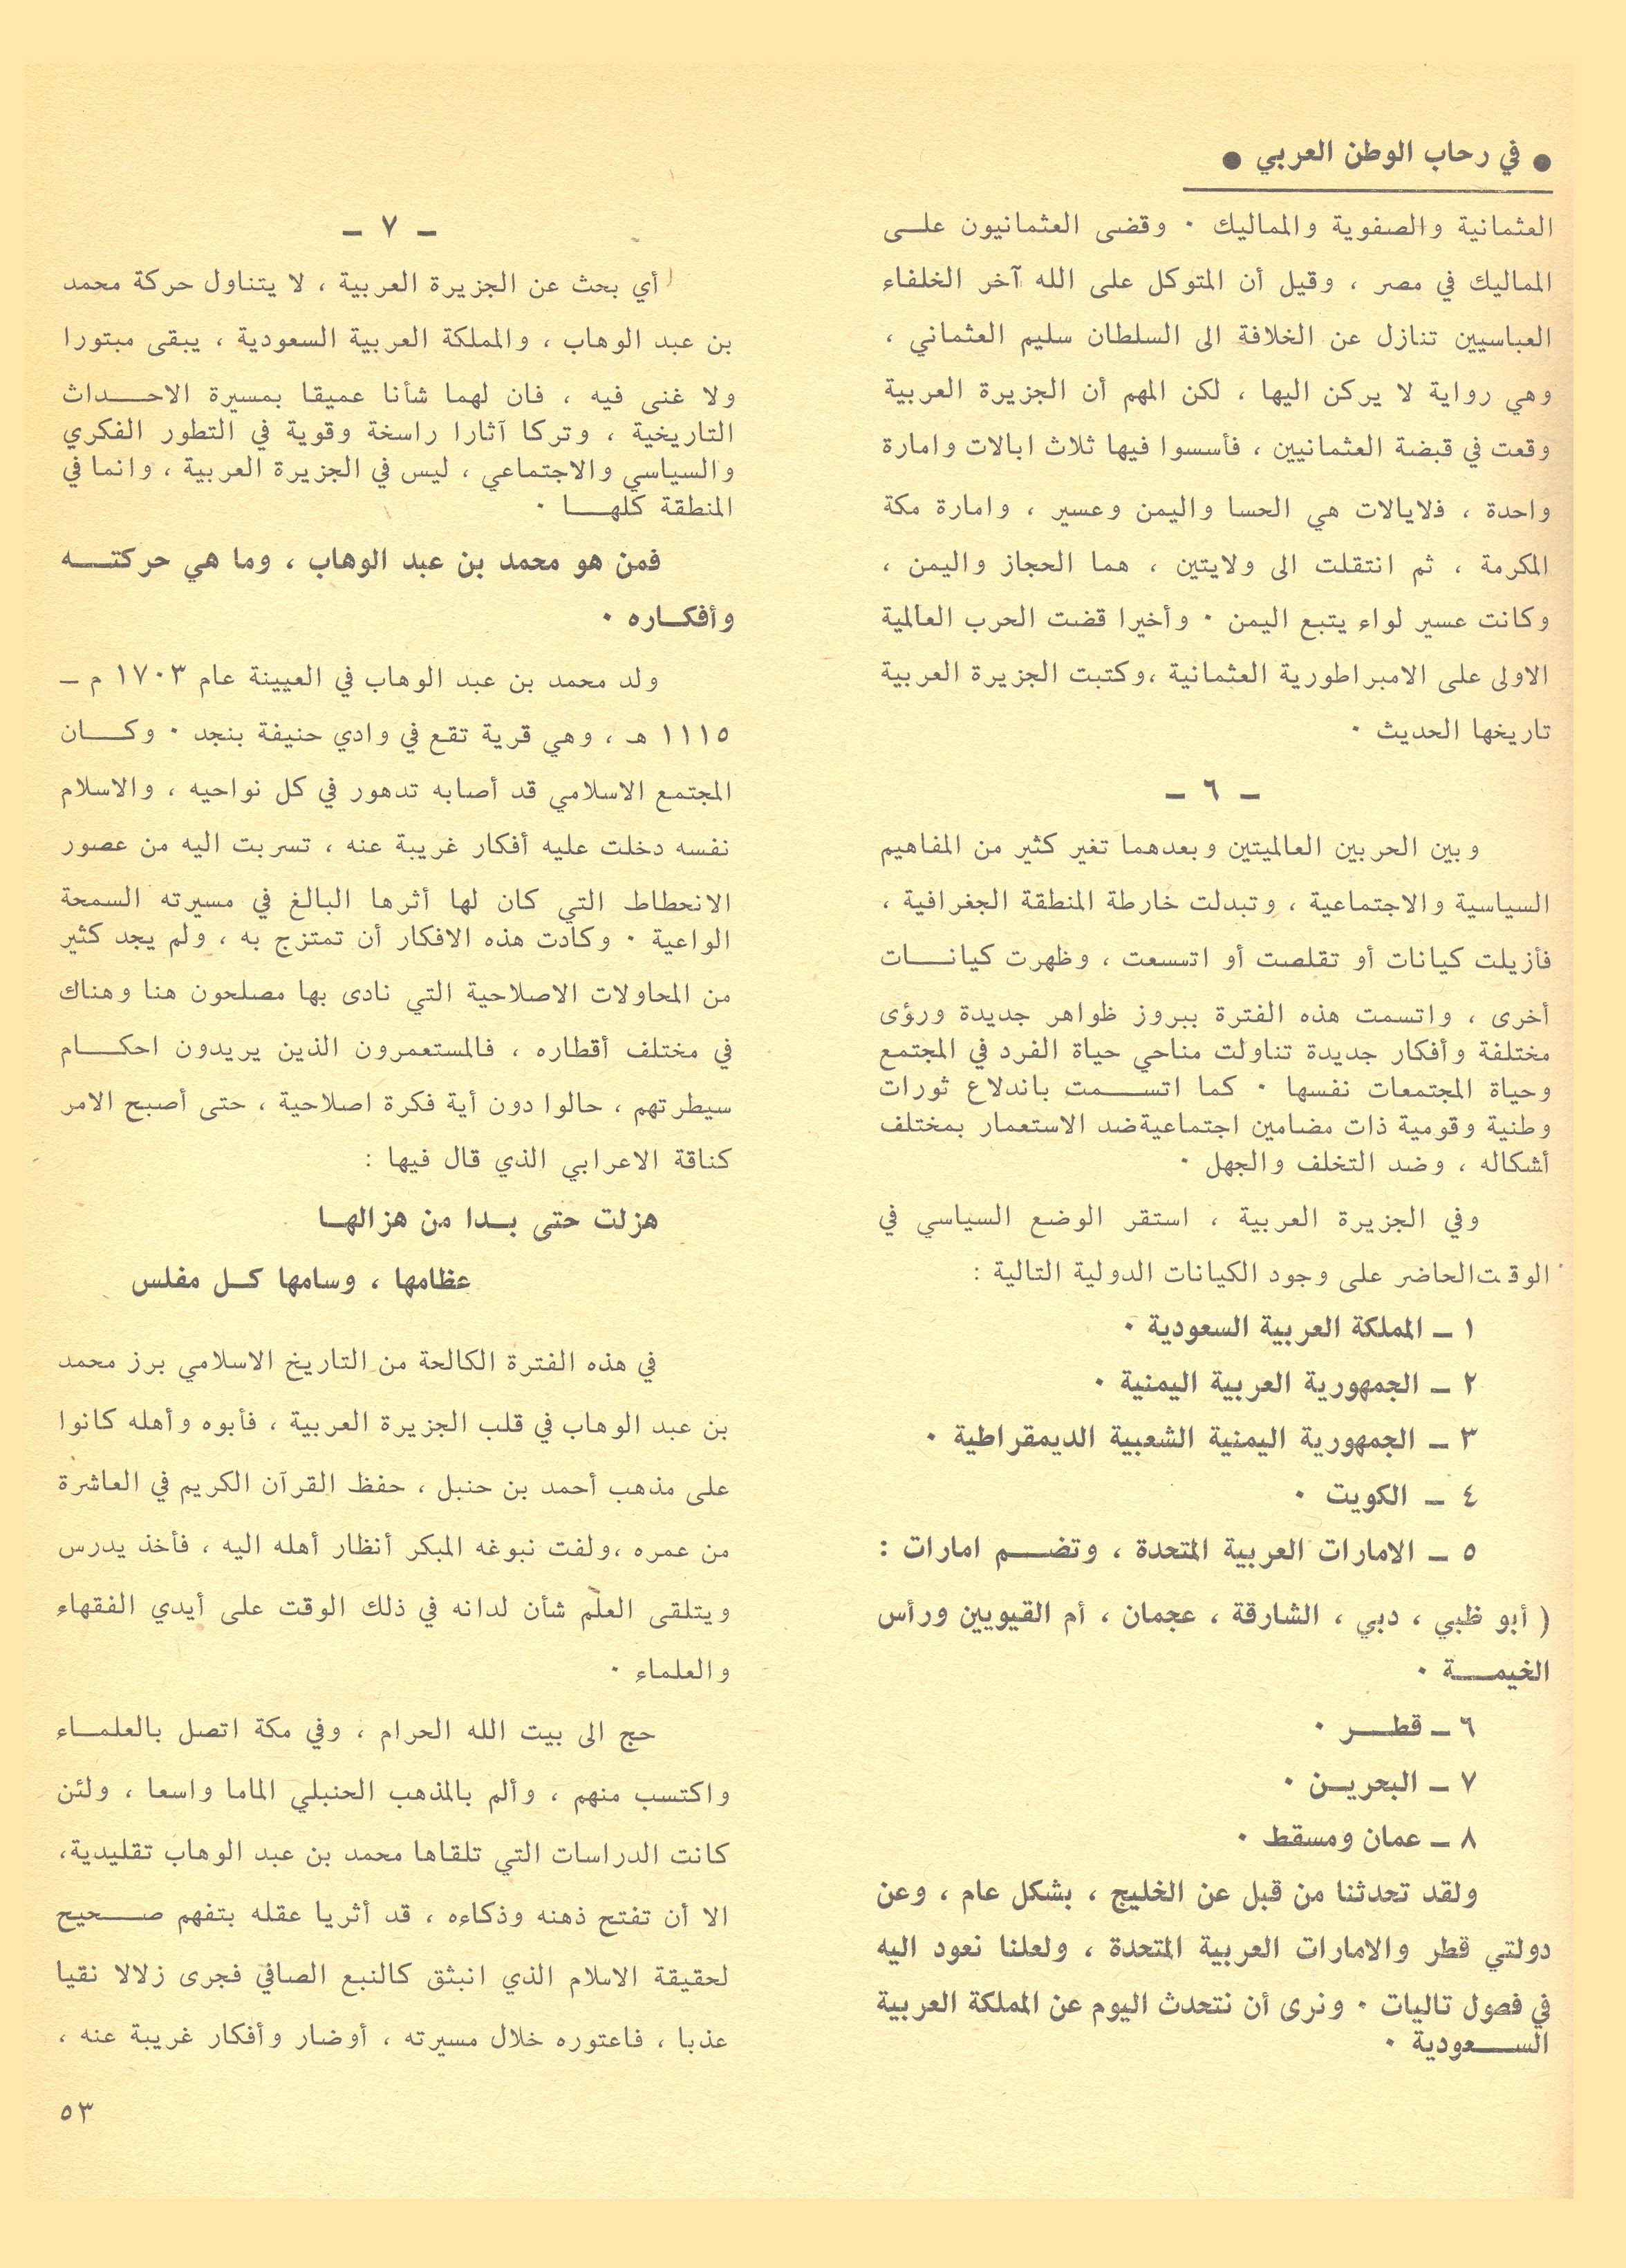 ● في رحاب الوطن العربي ●
العثمانية والصفوية والمماليك ٠ وقضى العثمانيون علـى
المماليك في مصر ، وقيل أن المتوكل على الله آخر الخلفاء
العباسيين تنازل عن الخلافة الى السلطان سليم العثماني ،
وهي رواية لا يركن اليها ، لكن المهم أن الجزيرة العربية
وقعت في قبضة العثمانيين ، فأسسوا فيها ثلاث ابالات وامارة
واحدة ، فلايالات هي الحسا واليمن وعسير ، وامارة مكة
المكرمة ، ثم انتقلت الى ولايتين ، هما الحجاز واليمن ،
وكانت عسير لواء يتبع اليمن ٠ وأخيرا قضت الحرب العالمية
الاولى على الامبراطورية العثمانية ،وكتبت الجزيرة العربية
تاريخها الحديث ٠
ـ ٦ ـ
وبين الحربين العالميتين وبعدهما تغير كثير من المفاهيم
السياسية والاجتماعية ، وتبدلت خارطة المنطقة الجغرافية ،
فأزيلت كيانات أو تقلصت أو اتسعت ، وظهرت كيانـــات
أخرى ، واتسمت هذه الفترة ببروز ظواهر جديدة ورؤى
مختلفة وأفكار جديدة تناولت مناحي حياة الفرد في المجتمع
وحياة المجتمعات نفسها ٠ كما اتســـمت باندلاع ثورات
وطنية وقومية ذات مضامين اجتماعيةضد الاستعمار بمختلف
أشكاله ، وضد التخلف والجهل ٠
وفي الجزيرة العربية ، استقر الوضع السياسي في
الوقت الحاضر على وجود الكيانات الدولية التالية :
١ ـ المملكة العربية السعودية ٠
٢ ـ الجمهورية العربية اليمنية ٠
٣ ـ الجمهورية اليمنية الشعبية الديمقراطية ٠
٤ ـ الكويت ٠
٥ ـ الامارات العربية المتحدة ، وتضـــم امارات :
( أبو ظبي ، دبي ، الشارقة ، عجمان ، أم القيويين ورأس
الخيمـــة ٠
٦ ـ قطـــر ٠
٧ ـ البحريـن ٠
٨ ـ عمان ومسقط ٠
ولقد تحدثنا من قبل عن الخليج ، بشكل عام ، وعن
دولتي قطر والامارات العربية المتحدة ، ولعلنا نعود اليه
في فصول تاليات ٠ ونرى أن نتحدث اليوم عن المملكة العربية
الســـعودية ٠
ـ ٧ ـ
أي بحث عن الجزيرة العربية ، لا يتناول حركة محمد
بن عبد الوهاب ، والمملكة العربية السعودية ، يبقى مبتورا
ولا غنى فيه ، فان لهما شأنا عميقا بمسيرة الاحـــداث
التاريخية ، وتركا آثارا راسخة وقوية في التطور الفكري
والسياسي والاجتماعي ، ليس في الجزيرة العربية ، وانما في
المنطقة كلهـــا ٠
فمن هو محمد بن عبد الوهاب ، وما هي حركتـــه
وأفكـاره ٠
ولد محمد بن عبد الوهاب في العيينة عام ١٧٠٣ م ـ
١١١٥ هـ ، وهي قرية تقع في وادي حنيفة بنجد ٠ وكـــان
المجتمع الاسلامي قد أصابه تدهور في كل نواحيه ، والاسلام
نفسه دخلت عليه أفكار غريبة عنه ، تسربت اليه من عصور
الانحطاط التي كان لها أثرها البالغ في مسيرته السمحة
الواعية ٠ وكادت هذه الافكار أن تمتزج به ، ولم يجد كثير
من المحاولات الاصلاحية التي نادى بها مصلحون هنا وهناك
في مختلف أقطاره ، فالمستعمرون الذين يريدون احكـــام
سيطرتهم ، حالوا دون أية فكرة اصلاحية ، حتى أصبح الامر
كناقة الاعرابي الذي قال فيها :
هزلت حتى بـدا من هزالهـا
عظامها ، وسامها كـل مفلس
في هذه الفترة الكالحة من التاريخ الاسلامي برز محمد
بن عبد الوهاب في قلب الجزيرة العربية ، فأبوه وأهله كانوا
على مذهب أحمد بن حنبل ، حفظ القرآن الكريم في العاشرة
من عمره ،ولفت نبوغه المبكر أنظار أهله اليه ، فأخذ يدرس
ويتلقى العلم شأن لداته في ذلك الوقت على أيدي الفقهاء
والعلماء ٠
حج الى بيت الله الحرام ، وفي مكة اتصل بالعلمـاء
واكتسب منهم ، وألم بالمذهب الحنبلي الماما واسعا ، ولئن
كانت الدراسات التي تلقاها محمد بن عبد الوهاب تقليدية،
الا أن تفتح ذهنه وذكاءه ، قد أثريا عقله بتفهم صـــحيح
لحقيقة الاسلام الذي انبثق كالنبع الصافي فجرى زلالا نقيا
عذبا ، فاعتوره خلال مسيرته ، أوضار وأفكار غريبة عنه ،
٥٣